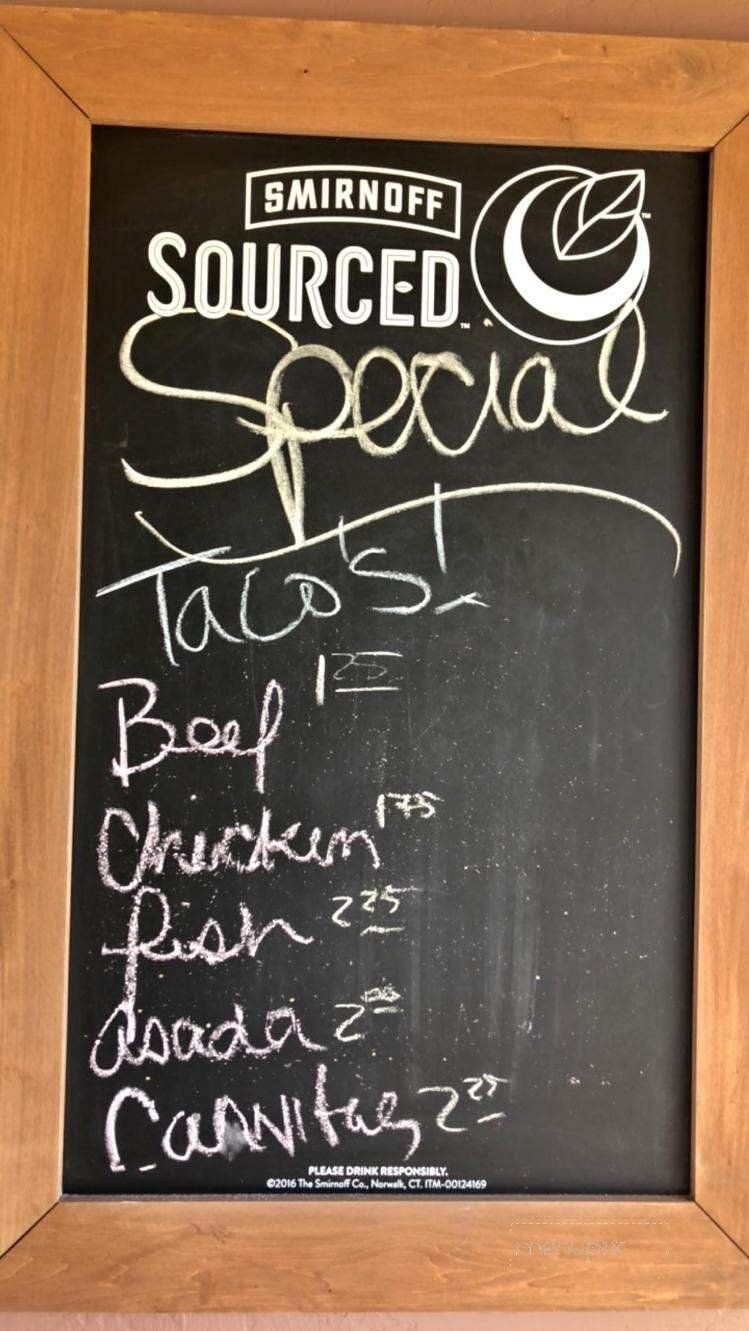 SMIRNOFF
SOURCED™
Special
Taco's!
Beef 1 25
Chicken 1 75
fish 2 25
asada 2 00
Carnitas 2 25
PLEASE DRINK RESPONSIBLY.
©2016 The Smirnoff Co., Norwalk, CT. ITM-00124169
menupix